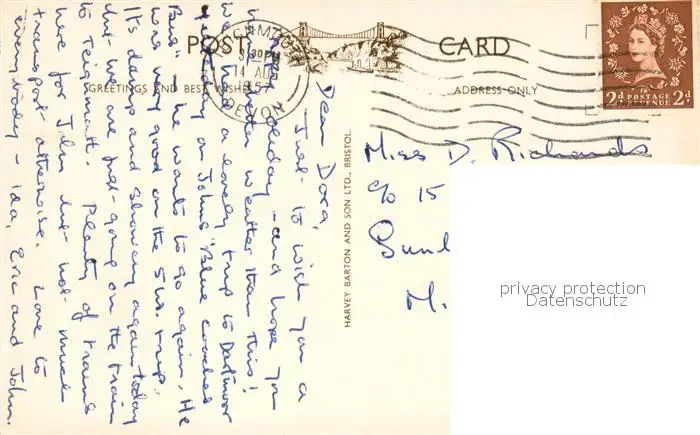 POST CARD
GREETINGS AND BEST WISHES
ADDRESS ONLY
DEVON
2D POSTAGE REVENUE 2D
HARVEY BARTON AND SON LTD., BRISTOL.
Miss D. Richards
c/o 15
Sunl
M.
privacy protection
Datenschutz
Dear Dora,
Just to wish you a
holiday - and hope you
better weather than this!
we had a lovely trip to Dartmoor
on Johns "Blue coaches
Bus" - he wants to go again. He
was very good on the 5 hrs. trip.
It's damp and showery again today
but we are just going on the train
to Teignmouth. Plenty of trains
here for John but not much
transport otherwise. Love to
everybody - Ida, Eric and John.